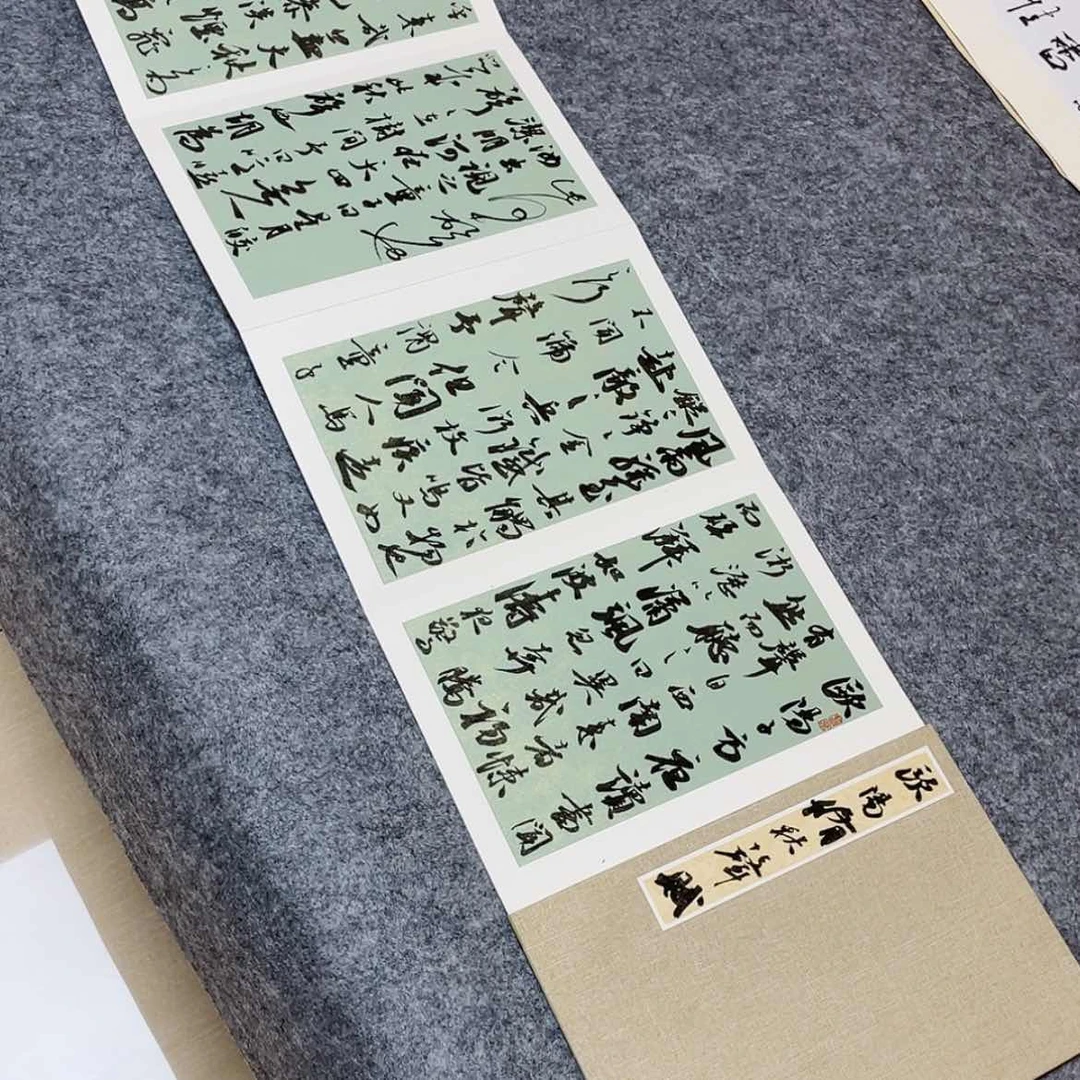 歐陽修秋聲賦
歐陽子方夜讀書聞
有聲自西南來者悚
然而聽之曰異哉初
淅瀝以蕭颯忽奔騰
而砰湃如波濤夜驚
風雨驟至其觸於物也
鏦鏦錚錚金鐵皆鳴又如
赴敵之兵銜枚疾走
不聞號令但聞人馬
之行聲予謂童子
此何聲也
汝出視之童子曰星月皎
潔明河在天四無人
聲聲在樹間予曰噫嘻
悲哉此秋聲也胡為